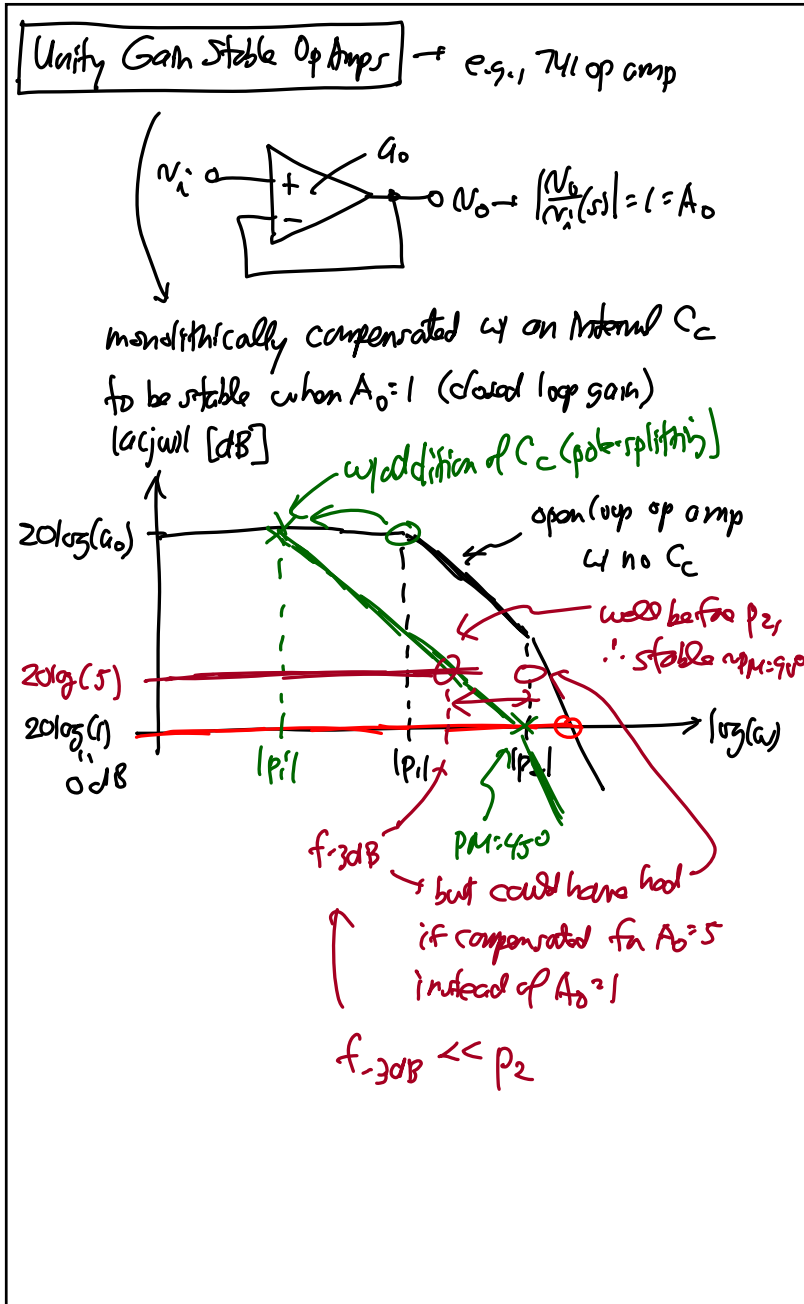 Unity Gain Stable Op Amps → e.g., 741 op amp
a₀
vᵢ + − v₀ → |v₀/vᵢ(s)| = 1 = A₀
monolithically compensated w/ an internal C_c
to be stable when A₀=1 (closed loop gain)
|a(jω)| [dB]
w/ addition of C_c (pole-splitting)
20log(a₀)
open loop op amp
w/ no C_c
well before p₂,
∴ stable ~PM=90°
20log(5)
20log(1)
" 0dB
log(ω)
|p₁'| |p₁| |p₂|
f-3dB PM=45°
but could have had
if compensated for A₀=5
instead of A₀=1
f-3dB << p₂